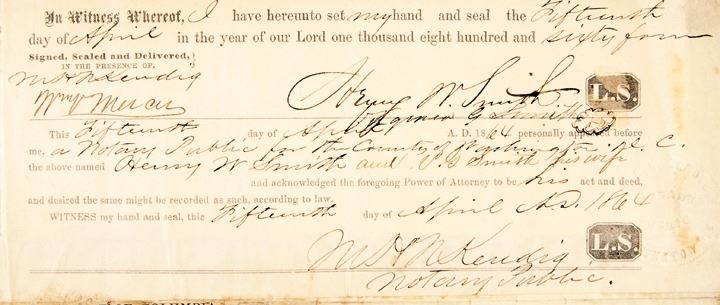 In Witness Whereof, I have hereunto set my hand and seal the Fifteenth
day of April in the year of our Lord one thousand eight hundred and sixty four
Signed, Sealed and Delivered,
IN THE PRESENCE OF,
M H N Kendig
Wm P Mercer
Henry W. Smith L.S.
Virginia G Smith
This Fifteenth day of April A. D. 1864 personally appeared before
me, a Notary Public for the County of Washington D. C.
the above named Henry W Smith and V. G Smith his wife
and acknowledged the foregoing Power of Attorney to be his act and deed,
and desired the same might be recorded as such, according to law.
WITNESS my hand and seal, this Fifteenth day of April A.D. 1864
M H N Kendig L.S.
Notary Public.